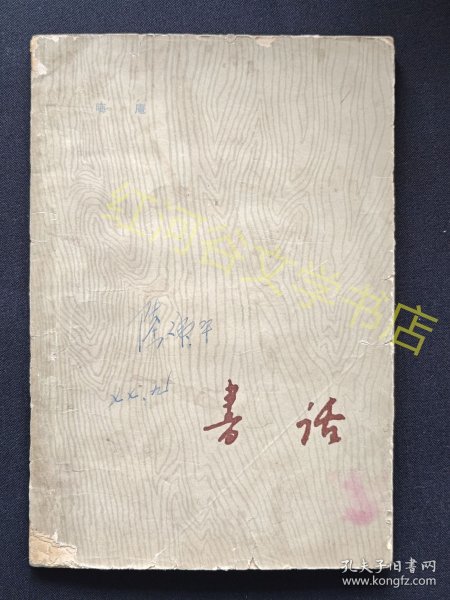 晦 庵
红河谷文学书店
书 话
孔夫子旧书网
www.kongfz.com